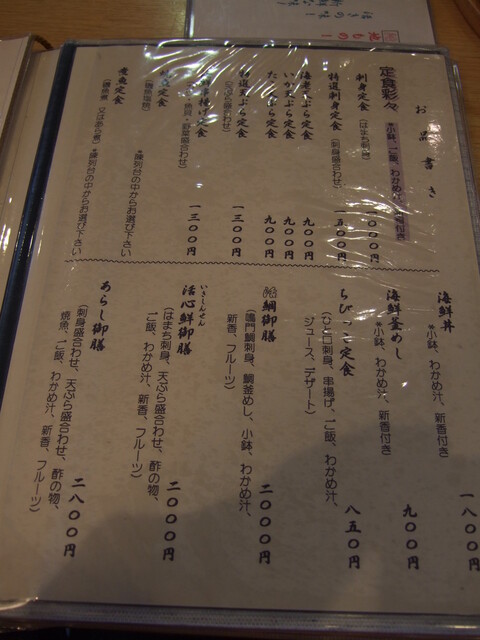 お品書き
定食彩々
*小鉢、ご飯、わかめ汁、付き
刺身定食
(はまち刺身)
一〇〇〇円
特選刺身定食
(刺身盛合わせ)
一五〇〇円
海老天ぷら定食
九〇〇円
いか天ぷら定食
九〇〇円
天ぷら定食
九〇〇円
天ぷら定食
(天ぷら盛合わせ)
一三〇〇円
定食
野菜盛合わせ)
一三〇〇円
定食
(磯魚塩焼)
*陳列台の中からお選び下さい
煮魚定食
(磯魚煮 又はあら煮)
*陳列台の中からお選び下さい
海鮮丼
*小鉢、わかめ汁、新香付き
一八〇〇円
海鮮釜めし
*小鉢、わかめ汁、新香付き
九〇〇円
ちびっこ定食
(ひと口刺身、串揚げ、ご飯、わかめ汁、
ジュース、デザート)
八五〇円
鯛御膳
(鳴門鯛刺身、鯛釜めし、小鉢、わかめ汁、
新香、フルーツ)
二〇〇〇円
いきしんせん
活心鮮御膳
(はまち刺身、天ぷら盛合わせ、酢の物、
ご飯、わかめ汁、新香、フルーツ)
二〇〇〇円
あらし御膳
(刺身盛合わせ、天ぷら盛合わせ、酢の物、
焼魚、ご飯、わかめ汁、新香、フルーツ)
二八〇〇円